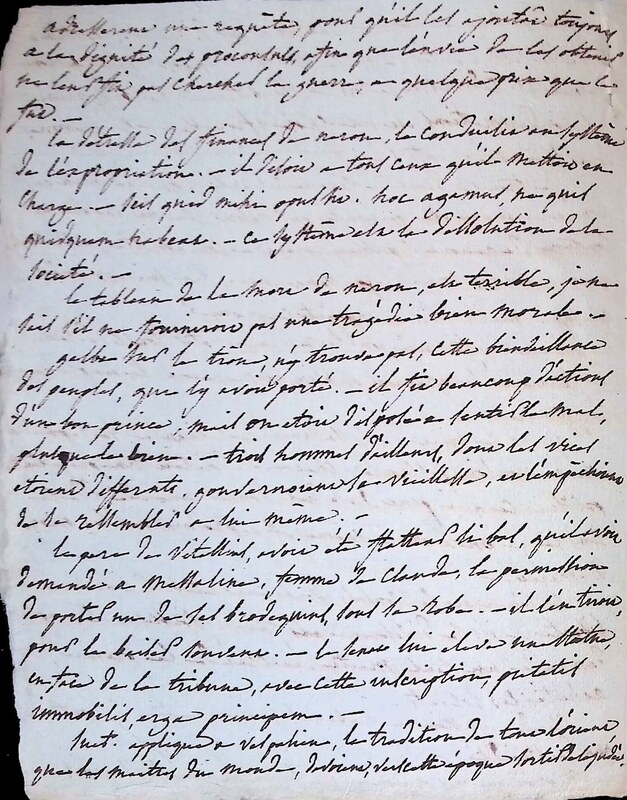 adresserent une requête, pour qu'il les ajoutât toujours
a la dignité des proconsuls, afin que l'envie de les obtenir
ne leur fit pas chercher la guerre, a quelque prix que ce
fut. —
la détresse des finances de neron, le conduisit au système
de l'expropriation. — il disoit a tous ceux qu'il mettoit en
charge. — scis quid mihi opus sit. hoc agamus, ne quis
quidquam habeat. — ce système est la dissolution de la
société. —
le tableau de la mort de neron, est terrible, je ne
sais s'il ne fourniroit pas une tragédie bien morale. —
galba sur le trone, n'y trouva pas, cette bienveillance
des peuples, qui l'y avoit porté. — il fit beaucoup d'actions
d'un bon prince; mais on etoit disposé a sentir le mal,
plus que le bien. — trois hommes d'ailleurs, dont les vices
etoient differents, gouvernoient sa vieillesse, et l'empêchoient
de se ressembler a lui même. —
le pere de Vitellius, avoit eté flatteur si bas, qu'il avoit
demandé a Messaline, femme de Claude, la permission
de porter un de ses brodequins, sous sa robe. — il l'en tiroit,
pour le baiser souvent. — le senat lui éleva une statue,
en face de la tribune, avec cette inscription, pietatis
immobilis erga principem. —
Suet. applique a vespasien, la tradition de tout l'orient
que les maitres du monde, devoient, vers cette époque sortir de la judée.